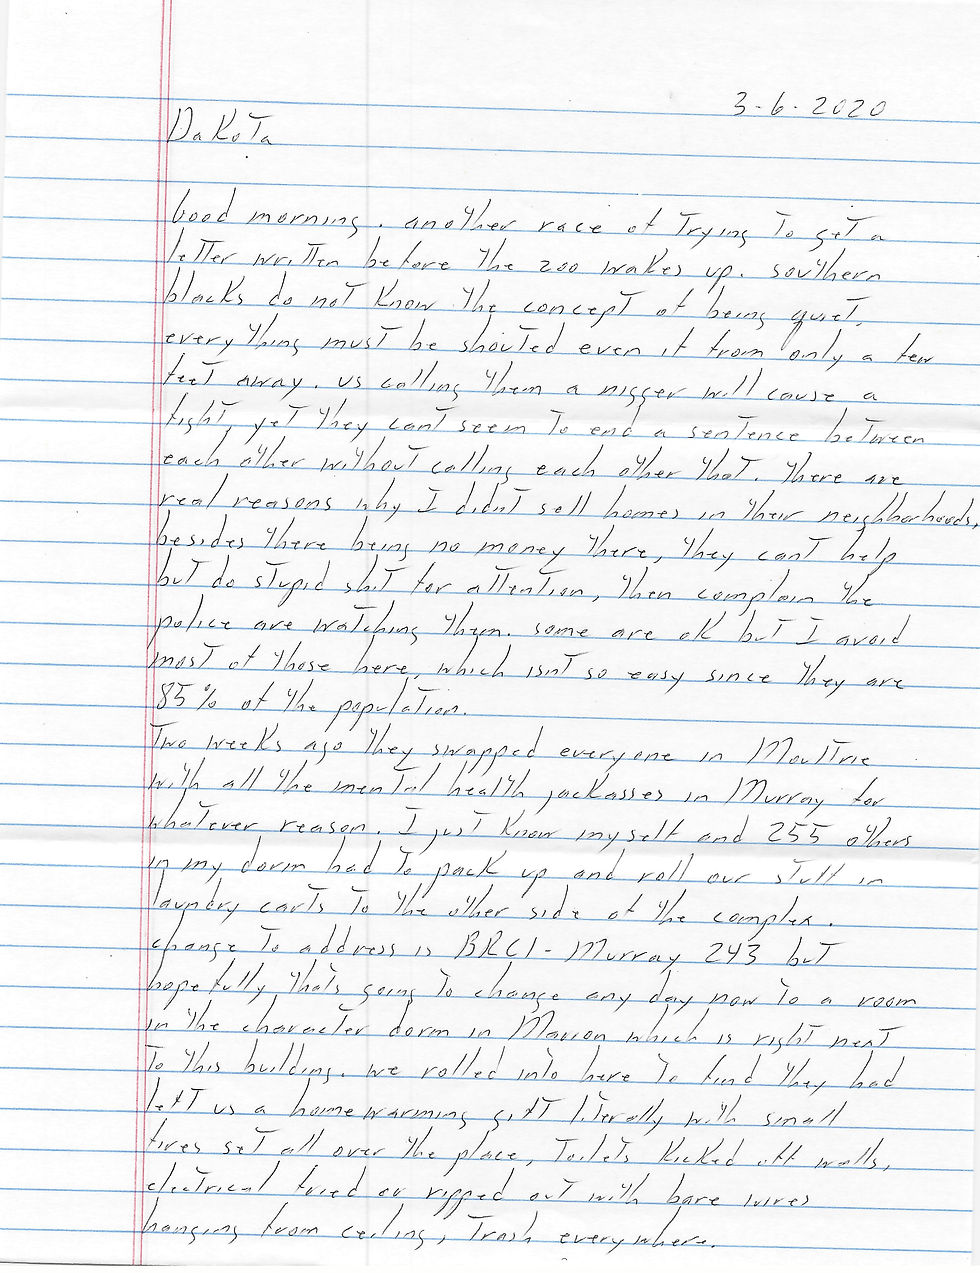 3-6-2020
DaKoTa
Good morning. another race of Trying To get a
letter written before the zoo wakes up. southern
blacks do not know the concept of being quiet.
everything must be shouted even if from only a few
feet away. us calling them a nigger will cause a
fight, yet they cant seem to end a sentence between
each other without calling each other that. there are
real reasons why I didnt sell homes in their neighborhoods,
besides there being no money there, they cant help
but do stupid shit for attention, then complain the
police are watching them. some are ok but I avoid
most of those here, which isnt so easy since they are
85% of the population.
Two weeks ago they swapped everyone in Moultrie
with all the mental health jackasses in Murray for
whatever reason. I just know myself and 255 others
in my dorm had to pack up and roll our stuff in
laundry carts to the other side of the complex.
change to address is BRCI-Murray 243 but
hopefully thats going to change any day now to a room
in the character dorm in Marion which is right next
to this building. we rolled into here to find they had
left us a homewarming gift literally with small
fires set all over the place, toilets kicked off walls,
electrical fried or ripped out with bare wires
hanging from ceiling, trash everywhere.